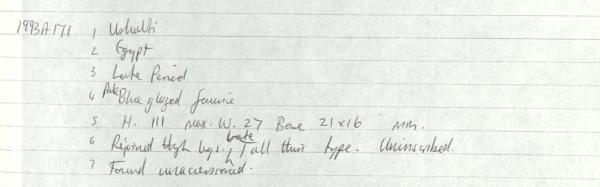 1993A171 1 Ushabti
2 Egypt
3 Late Period
4 Pale Blue glazed faience
5 H. 111 max. W. 27 Base 21x16 mm.
6 Rejoined thigh legs, tall thin type. Uninscribed.
7 Found unaccessioned.